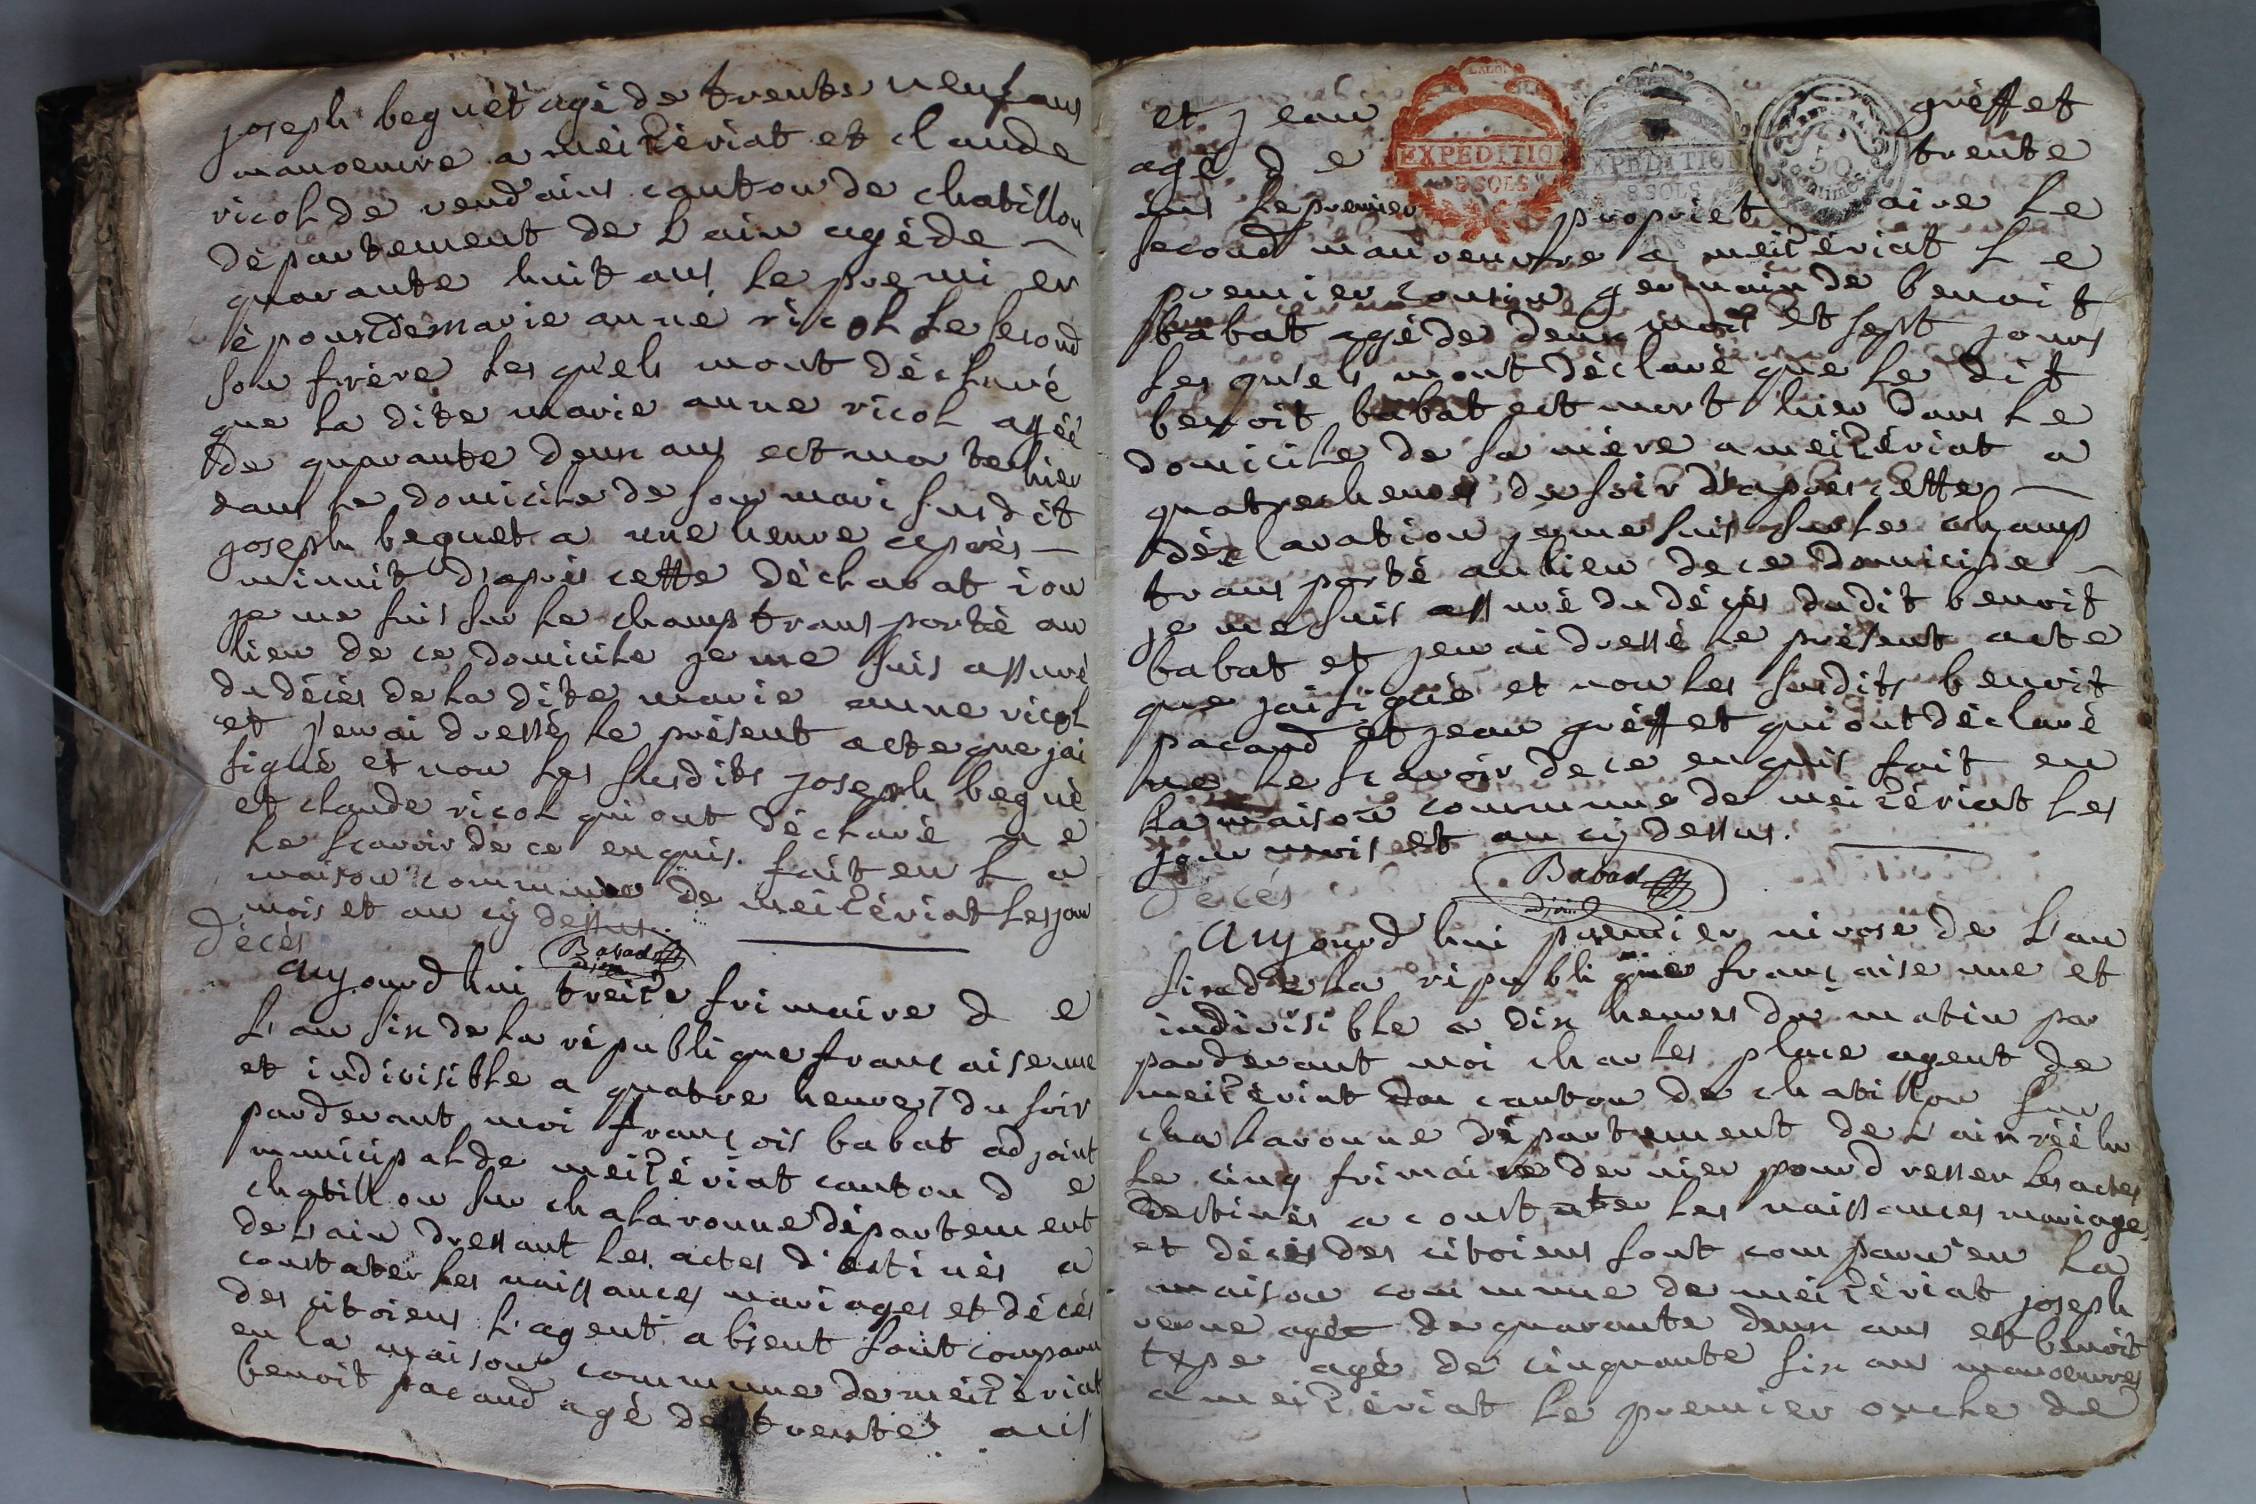 joseph beguet agé de trente neuf ans
manoeuvre a meizériat et claude
vicol de vendains canton de chatillon
département de l'ain agé de
quarante huit ans le premi er
époux de marie anne vicol le second
son frère lesquels mont déclaré
que la dite marie anne vicol agéé
de quarante deux ans est morte hier
dans le domicile de son mari susdit
joseph beguet a une heure après
minuit d'après cette déclarat ion
je me suis sur le champ transporté au
lieu de ce domicile je me suis assuré
du décès de la dite marie anne vicol
et j'en ai dressé le présent acte que jai
signé et non les susdits joseph begué
et claude vicol qui ont déclaré ne
le scavoir de ce enquis. fait en la
maison commune de meizériat les jour
mois et an cy dessus.
Décès
Babad
adjoint
Aujourd hui treize frimaire d e
L'an six de la république française une
et indivisible a quatre heures du soir
pardevant moi françois babat adjoint
municipal de meizériat canton d e
chatillon sur chalaronne département
de l'ain dressant les actes d'estinés a
constater les naissances mariages et décès
des citoiens l'agent absent sont comparu
en la maison commune de meizériat
benoit pacaud agé de trente ans
et jean grèffet
agé d e trente
ans le premier propriet aire le
second manoeuvre a meizériat l e
premier cousin germain de benoit
babat agé de deux mois et sept jours
les quels mont déclaré que le dit
benoit babat est mort hier dans le
domicile de sa mère a meizériat a
quatre heures du soir d'après cette
déclaration je me suis sur le champ
transporté au lieu de ce domicile
je me suis assuré du décès dudit benoit
babat et jen ai dressé le présent acte
que jai signé et non les susdits benoit
pacaud et jean grèffet qui ont déclaré
ne le scavoir de ce enquis fait en
la maison commune de meizériat les
jour mois et an cy dessus.
Babad
adjoint
Décès
Aujourd hui premier nivose de L'an
six de la république française une et
indivisible a dix heures du matin par
pardevant moi charles place agent de
meizériat canton de chatillon sur
chalaronne département de l'ain réélu
le cinq frimaire dernier pour dresser les actes
destinés a constater les naissances mariages
et décès des citoiens sont comparu en la
maison commune de meizériat joseph
agéc de quarante deux ans et benoit
agé de cinquante six ans manoeuvres
a meizériat le premier oncle de
LA LOI
EXPEDITION
8 SOLS
EXPEDITION
8 SOLS
50
Centimes